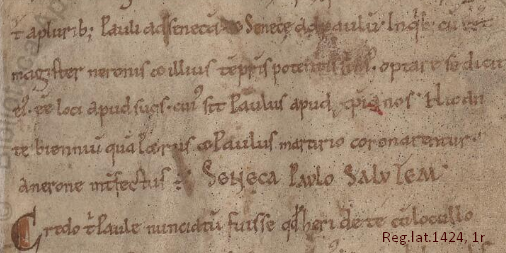 t apluribꝫ Pauli ad senecā & Senecę ad paulū. In qibꝫ cū eēt
magister neronis & illius tēporis potentissimus. optare se dicit
ei. ēē loci apud suos. cui' sit Paulus apud xp̄ianos. Hic an
te bienniū quā Petrus & Paulus martirio coronarentur.
a nerone interfectus ē. Seneca Paulo Salutem
Credo t' Paule nunciatū fuisse qd heri de te cū locullo
Reg.lat.1424, 1r